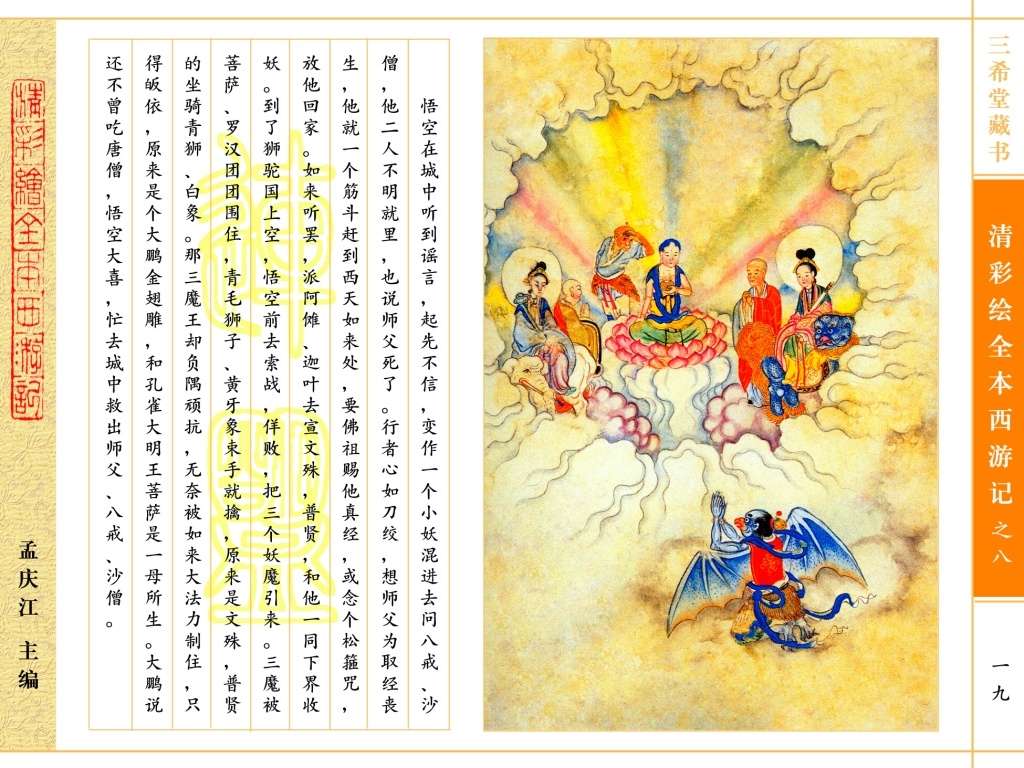 三希堂藏书
清彩绘全本西游记之八
一九
悟空在城中听到谣言，起先不信，变作一个小妖混进去问八戒、沙
僧，他二人不明就里，也说师父死了。行者心如刀绞，想师父为取经丧
生，他就一个筋斗赶到西天如来处，要佛祖赐他真经，或念个松箍咒，
放他回家。如来听罢，派阿傩、迦叶去宣文殊，普贤，和他一同下界收
妖。到了狮驼国上空，悟空前去索战，佯败，把三个妖魔引来。三魔被
菩萨、罗汉团团围住，青毛狮子、黄牙象束手就擒，原来是文殊，普贤
的坐骑青狮、白象。那三魔王却负隅顽抗，无奈被如来大法力制住，只
得皈依，原来是个大鹏金翅雕，和孔雀大明王菩萨是一母所生。大鹏说
还不曾吃唐僧，悟空大喜，忙去城中救出师父、八戒、沙僧。
清彩繪全本西游記
孟庆江 主编